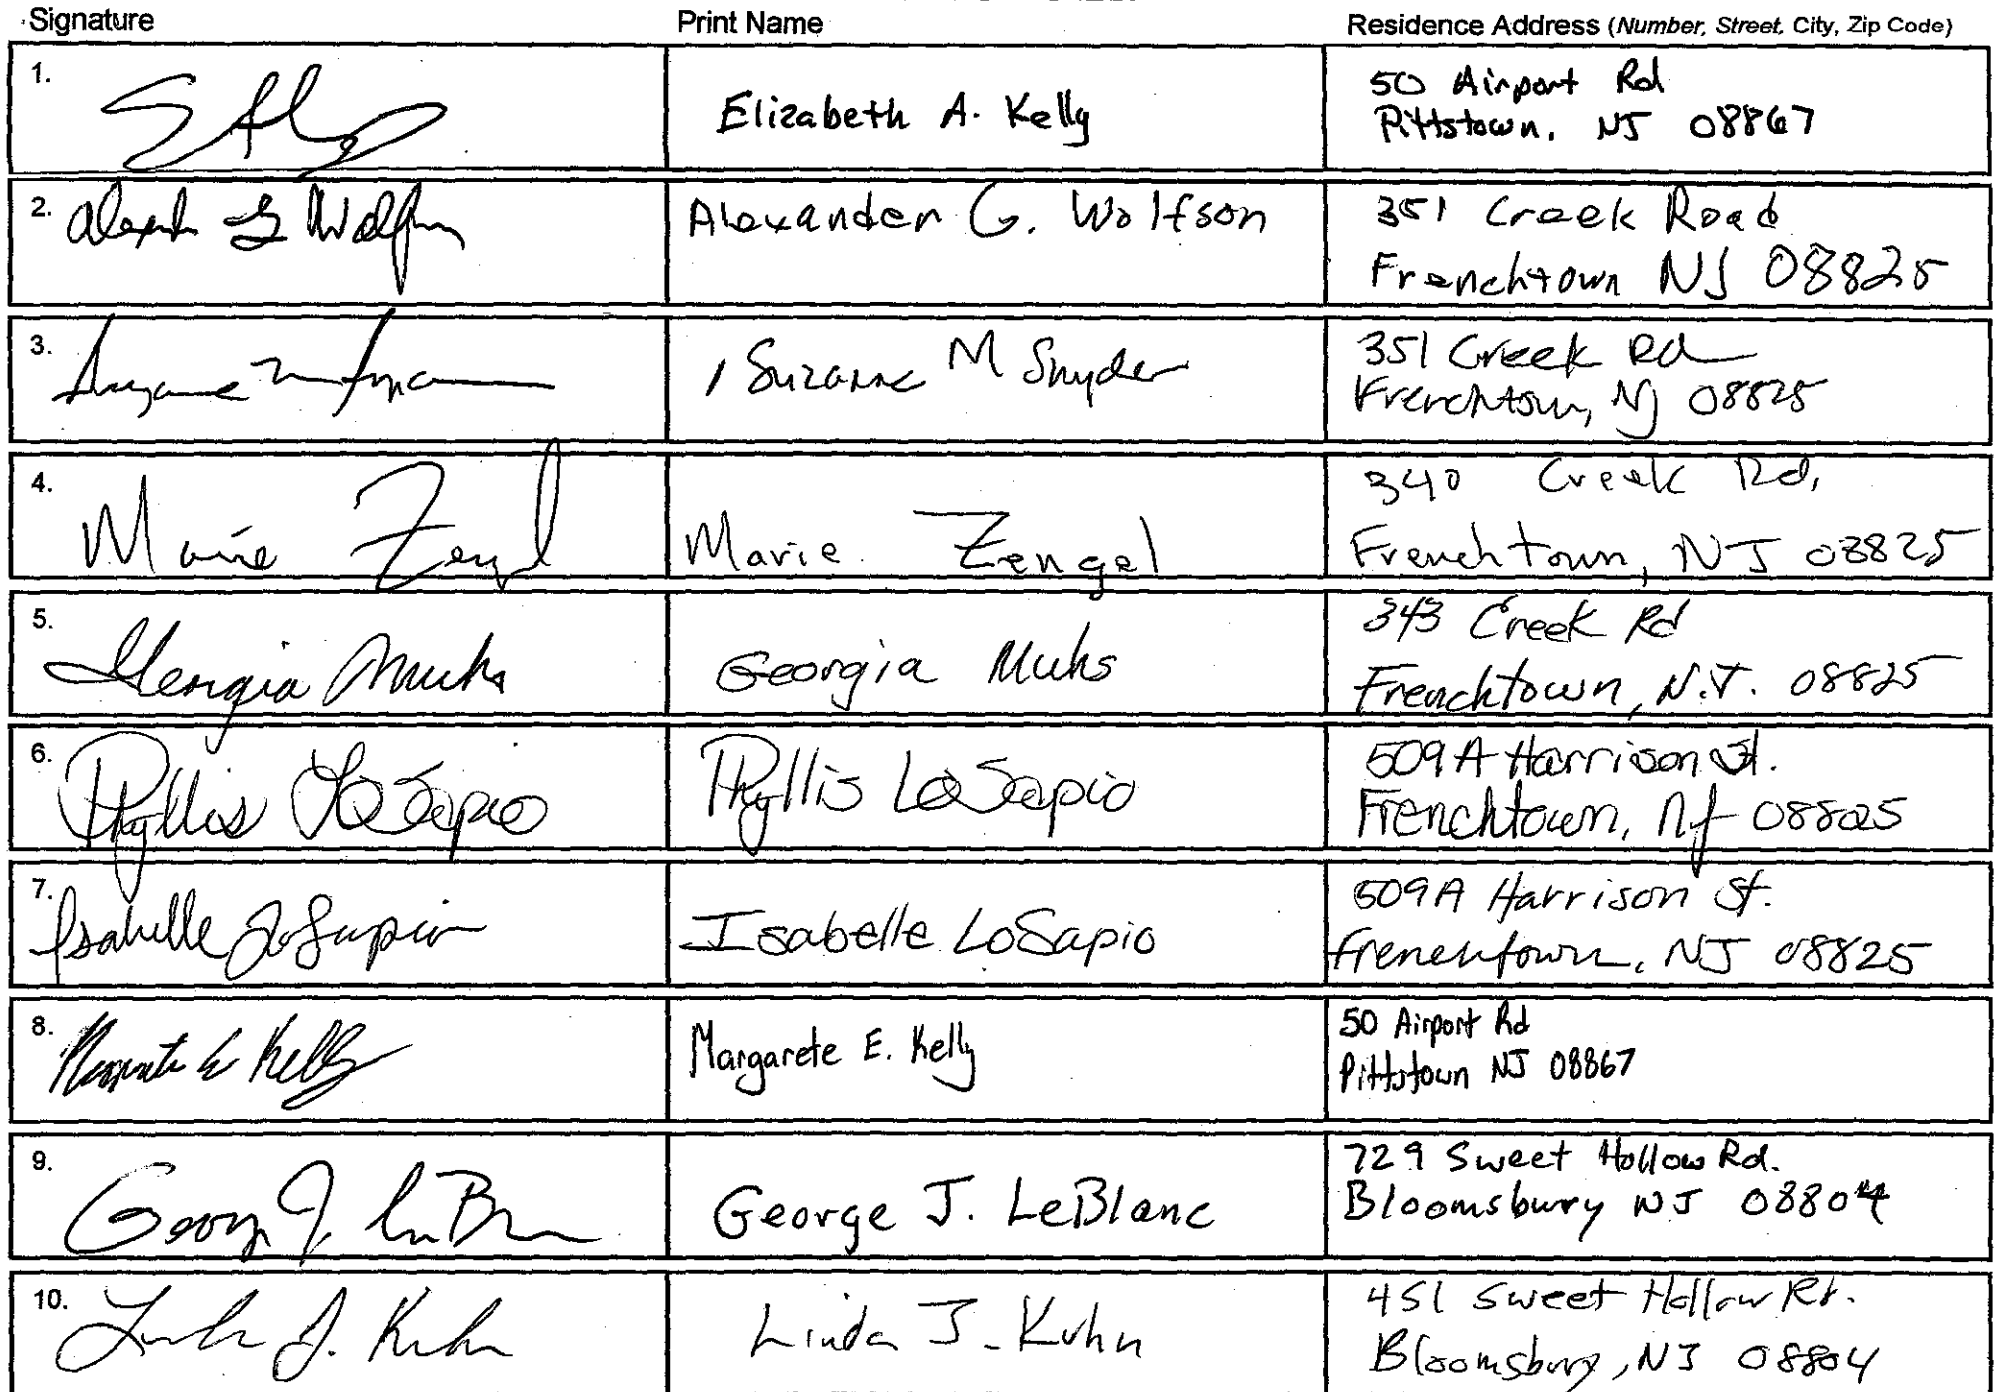 Signature Print Name Residence Address (Number, Street, City, Zip Code)
1. Elizabeth A. Kelly 50 Airport Rd
Pittstown, NJ 08867
2. Alexander G. Wolfson Alexander G. Wolfson 351 Creek Road
Frenchtown NJ 08825
3. Suzanne M Snyder Suzanne M Snyder 351 Creek Rd
Frenchtown, NJ 08825
4. Marie Zengel Marie Zengel 340 Creek Rd,
Frenchtown, NJ 08825
5. Georgia Muhs Georgia Muhs 343 Creek Rd
Frenchtown, N.J. 08825
6. Phyllis LoSapio Phyllis LoSapio 509A Harrison St.
Frenchtown, NJ 08825
7. Isabelle LoSapio Isabelle LoSapio 509A Harrison St.
Frenchtown, NJ 08825
8. Margarete E Kelly Margarete E. Kelly 50 Airport Rd
Pittstown NJ 08867
9. George J. LeBlanc George J. LeBlanc 729 Sweet Hollow Rd.
Bloomsbury NJ 08804
10. Linda J. Kuhn Linda J. Kuhn 451 Sweet Hollow Rd.
Bloomsbury, NJ 08804